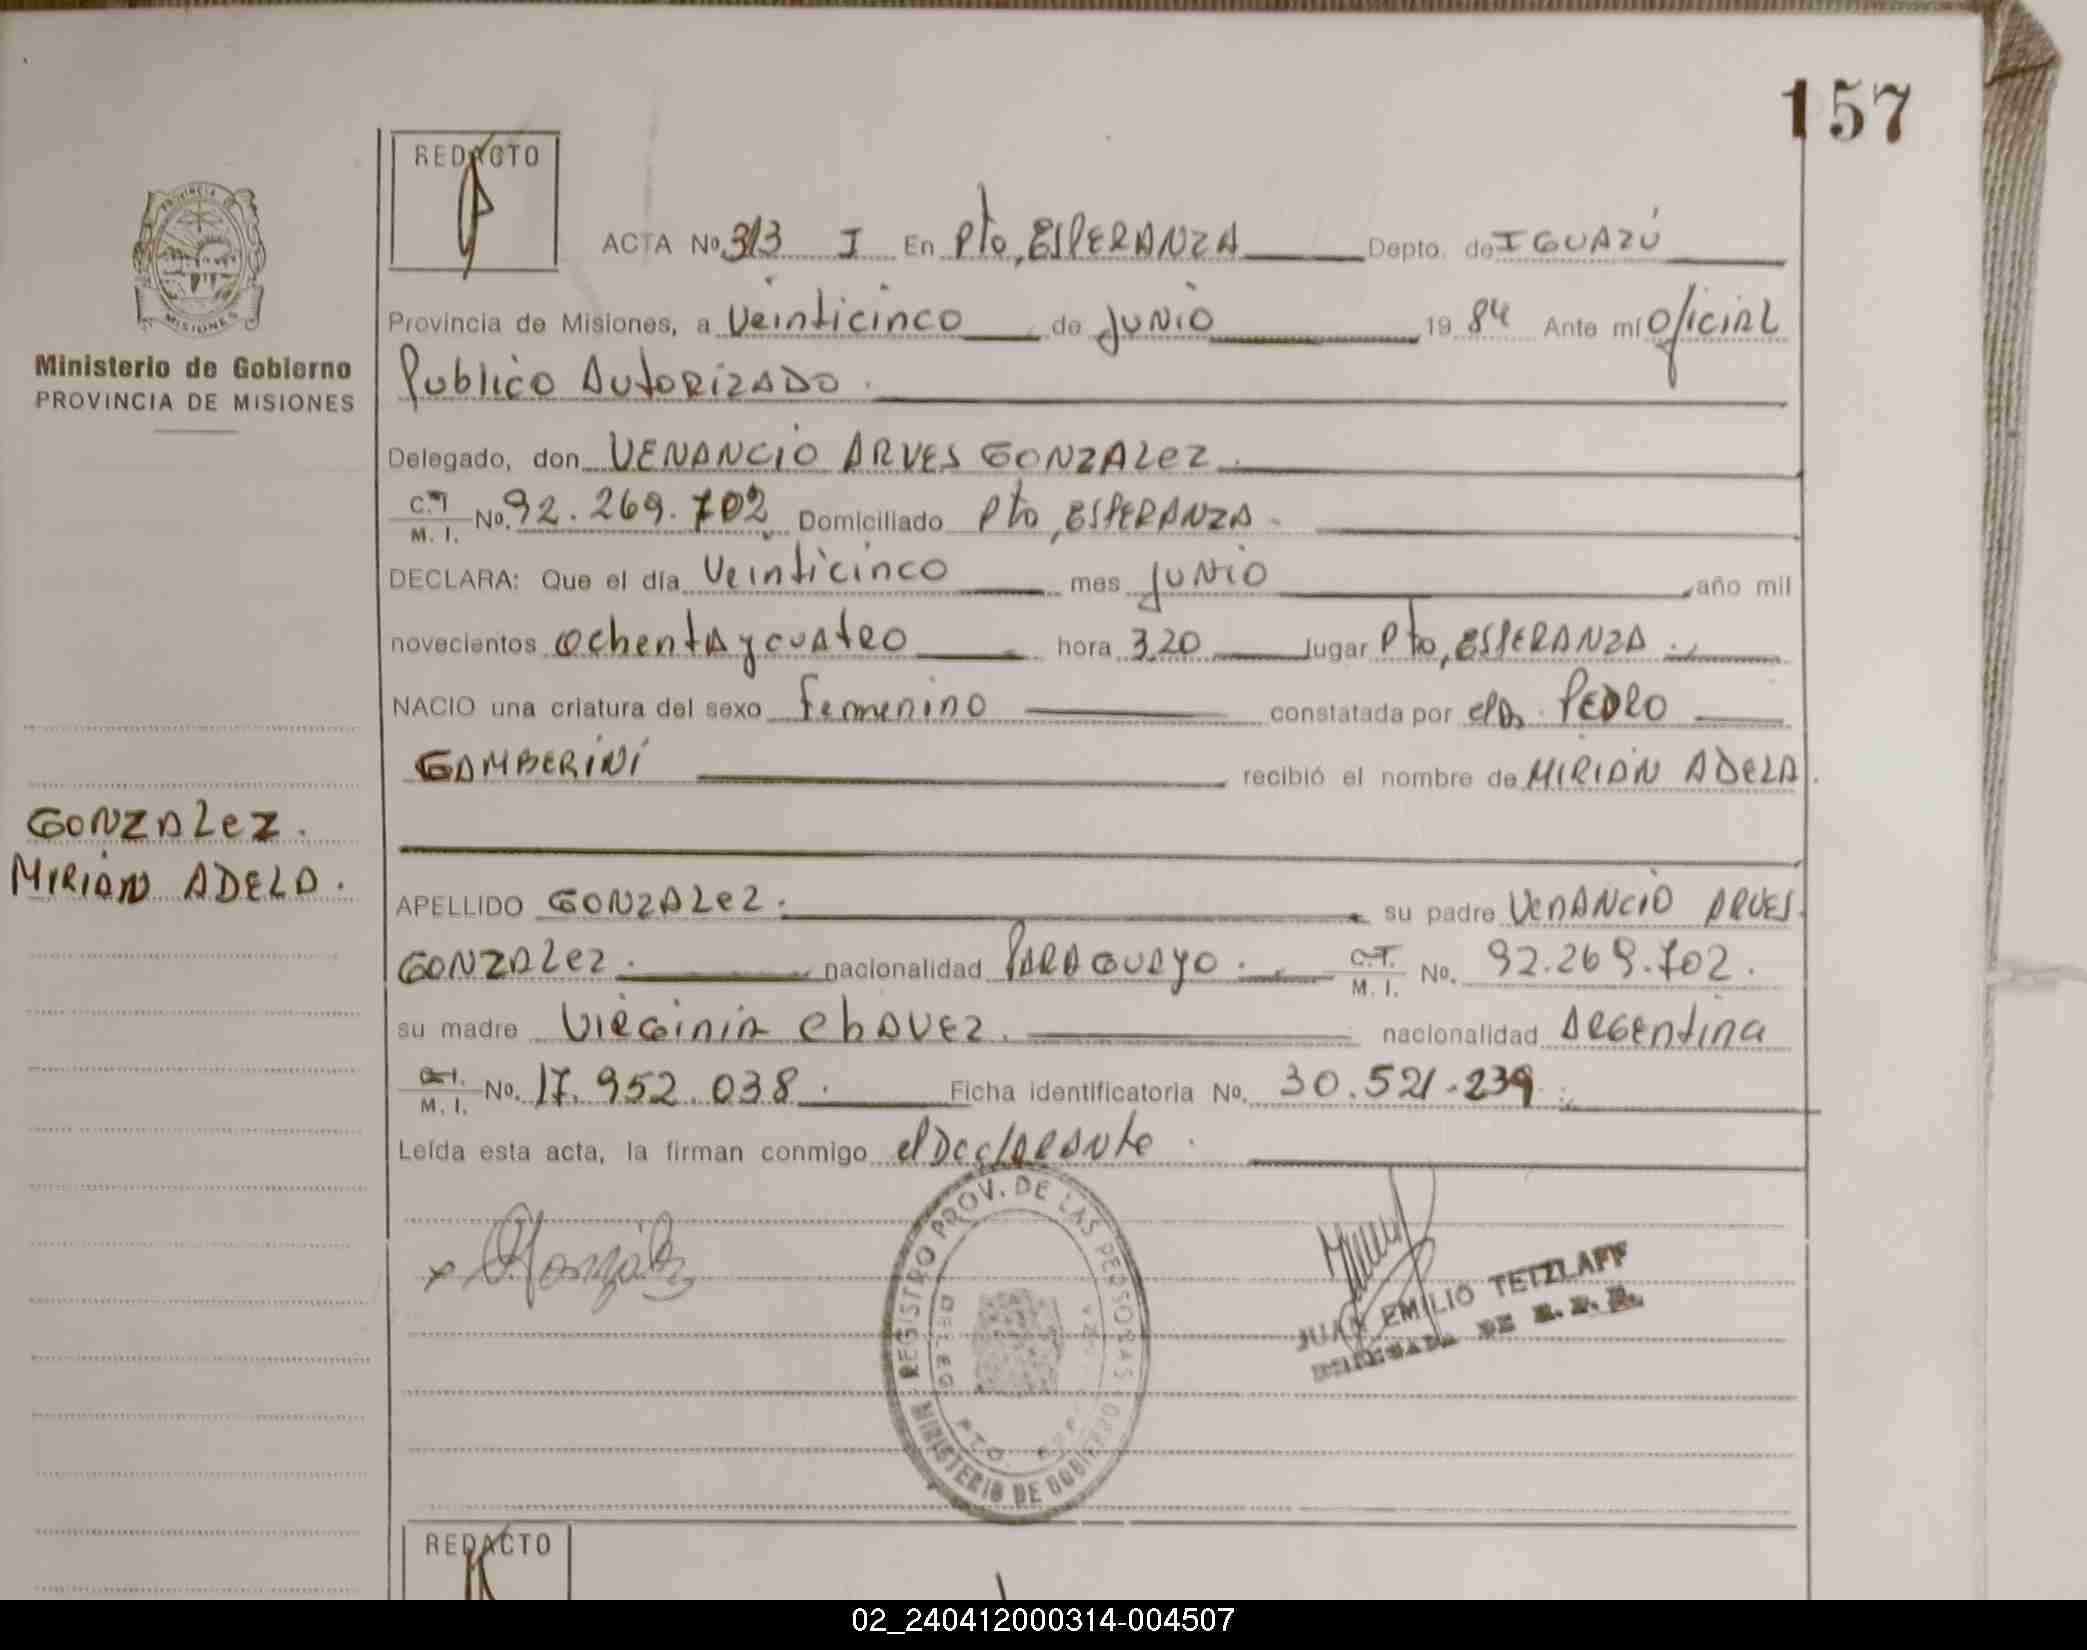 157
REDACTO
ACTA No. 313 I En Pto, ESPERANZA Depto. de IGUAZÚ
Provincia de Misiones, a Veinticinco de JUNIO 19 84 Ante mí Oficial
Publico Autorizado.
Ministerio de Gobierno
PROVINCIA DE MISIONES
Delegado, don VENANCIO ARVES GONZALEZ.
C.I. M. I. No. 92.269.702 Domiciliado Pto, ESPERANZA.
DECLARA: Que el día Veinticinco mes JUNIO año mil
novecientos Ochenta y cuatro hora 3,20 lugar Pto, ESPERANZA.
NACIO una criatura del sexo Femenino constatada por el Dr. PEDRO
GAMBERINI recibió el nombre de MIRIAN ADELA.
GONZALEZ.
MIRIAN ADELA.
APELLIDO GONZALEZ. su padre VENANCIO ARVES
GONZALEZ. nacionalidad PARAGUAYO. C.I. M. I. No. 92.269.702.
su madre Virginia Chavez. nacionalidad Argentina
C.I. M. I. No. 17.952.038. Ficha identificatoria No. 30.521.239.
Leída esta acta, la firman conmigo el Declarante.
x Gonzalez
REGISTRO PROV. DE LAS PERSONAS
MINISTERIO DE GOBIERNO
PTO.
JUAN EMILIO TETZLAFF
REDACTO
02_240412000314-004507